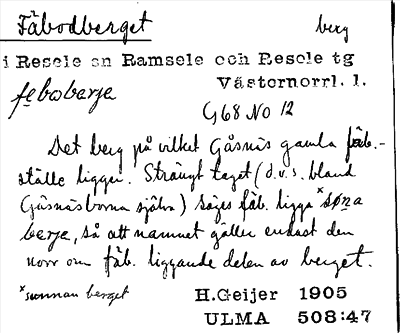 Fäbodberget berg
i Resele sn Ramsele och Resele tg
Västernorrl. l.
febobærje
G 68 NO 12
Det berg på vilket Gåsnäs gamla fäb.-
ställe ligger. Strängt taget (d.v.s. bland
Gåsnäsborna själva) säges fäb. ligga *søna
berje, så att namnet gäller endast den
norr om fäb. liggande delen av berget.
*sunnan berget H.Geijer 1905
ULMA 508:47